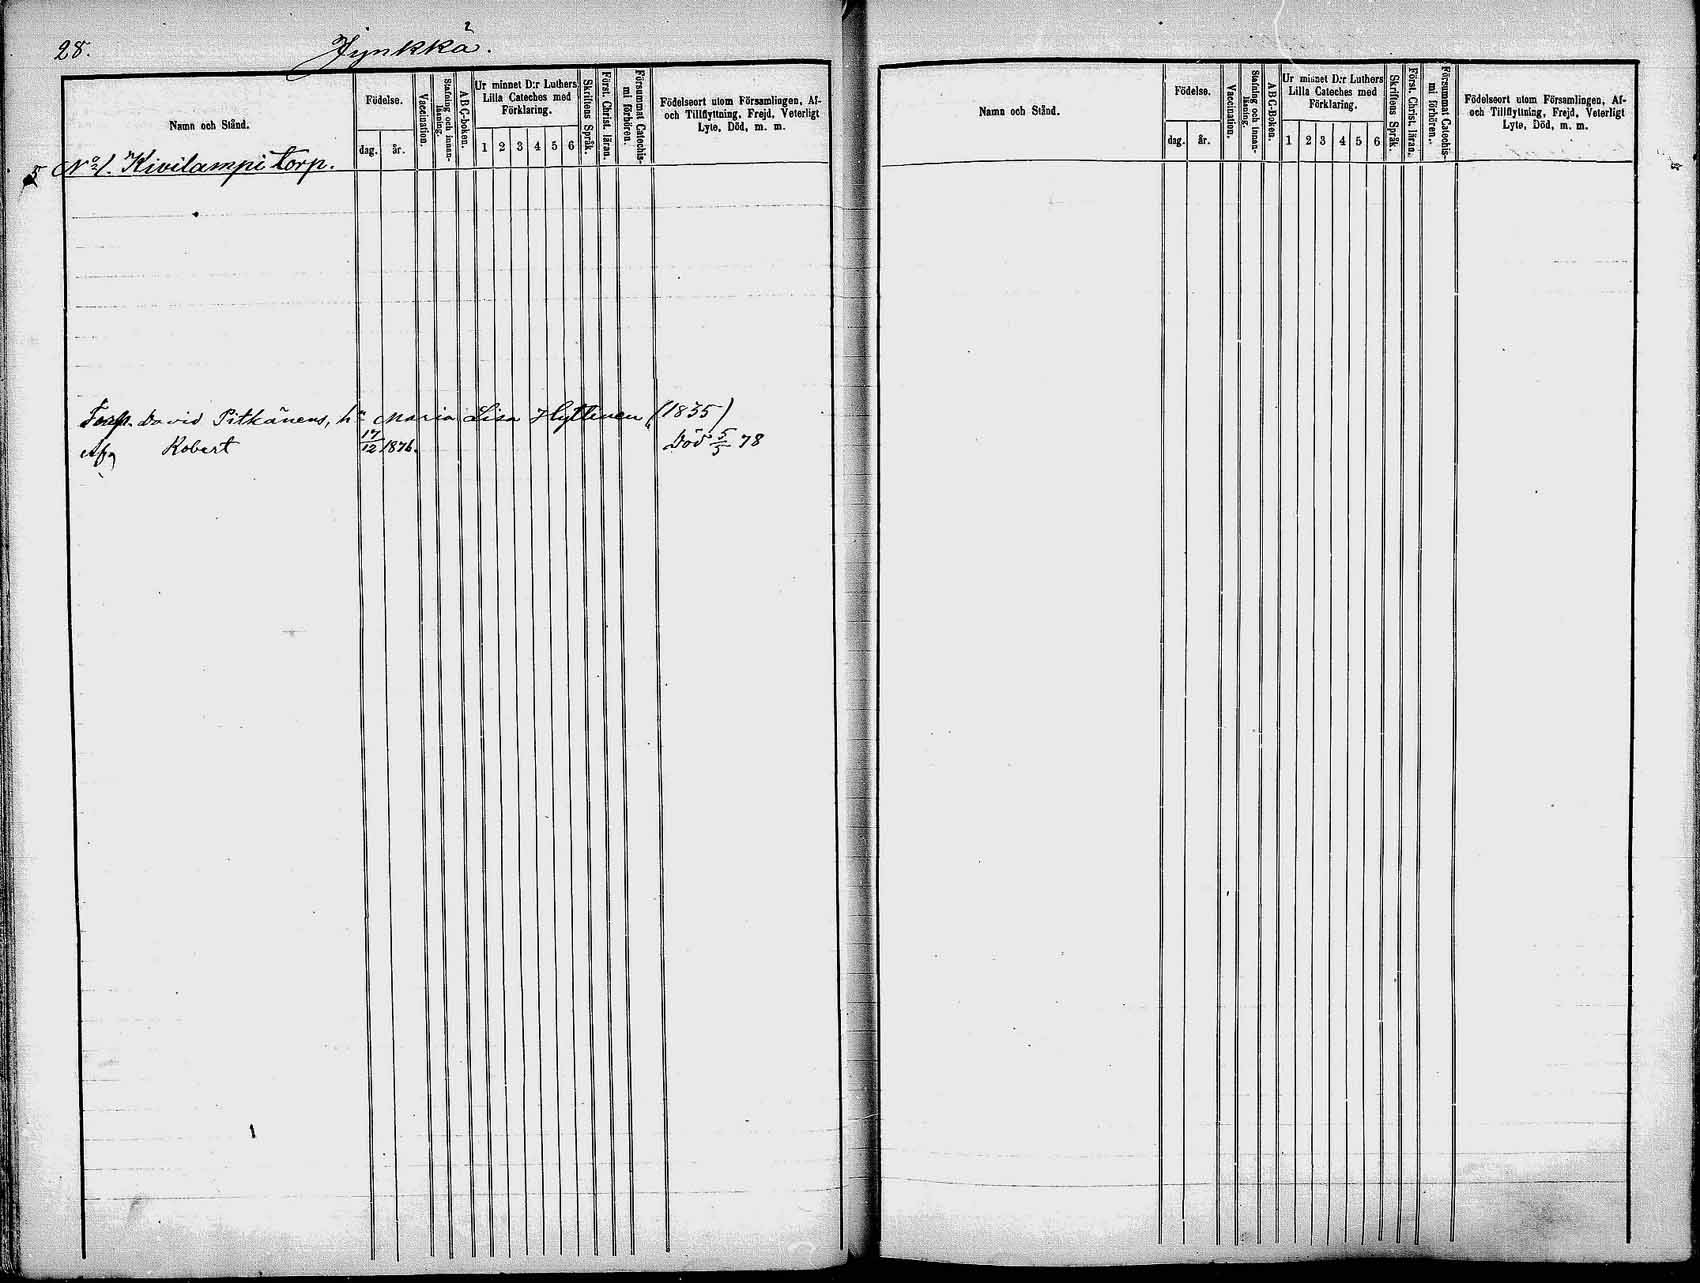 28.
Jynkkä.
Namn och Stånd.
Födelse.
dag.
år.
Vaccination.
Stafning och innanläsning.
ABC-boken.
Ur minnet D:r Luthers
Lilla Cateches med
Förklaring.
1 2 3 4 5 6
Skriftens Språk.
Först. Christ. läran.
Försummat Catechismi förhören.
Födelseort utom Församlingen, Af-
och Tillflyttning, Frejd, Veterligt
Lyte, Död, m. m.
5 No 1. Kivilampi torp.
Torp. David Pitkänens, h" Maria Lisa Hyttinen (1835)
Afg Robert 17/12 1876. Död 5/5 78
Namn och Stånd.
Födelse.
dag.
år.
Vaccination.
Stafning och innanläsning.
ABC-Boken.
Ur minnet D:r Luthers
Lilla Cateches med
Förklaring.
1 2 3 4 5 6
Skriftens Språk.
Först. Christ. läran.
Försummat Catechismi förhören.
Födelseort utom Församlingen, Af-
och Tillflyttning, Frejd, Veterligt
Lyte, Död, m. m.